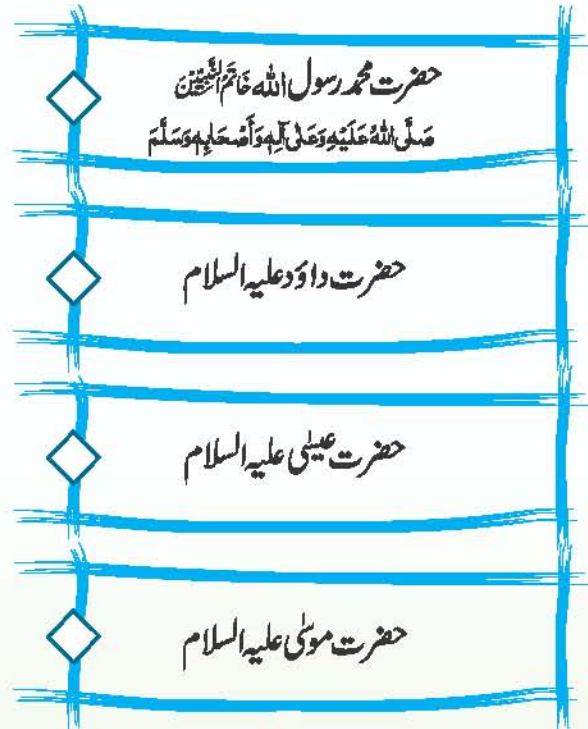 حضرت محمد رسول اللہ خَاتَمُ النَّبِیّٖنَ
صَلَّى اللهُ عَلَيْهِ وَعَلٰى آلِهٖ وَأَصْحَابِهٖ وَسَلَّمَ
حضرت داؤد علیہ السلام
حضرت عیسٰی علیہ السلام
حضرت موسٰی علیہ السلام